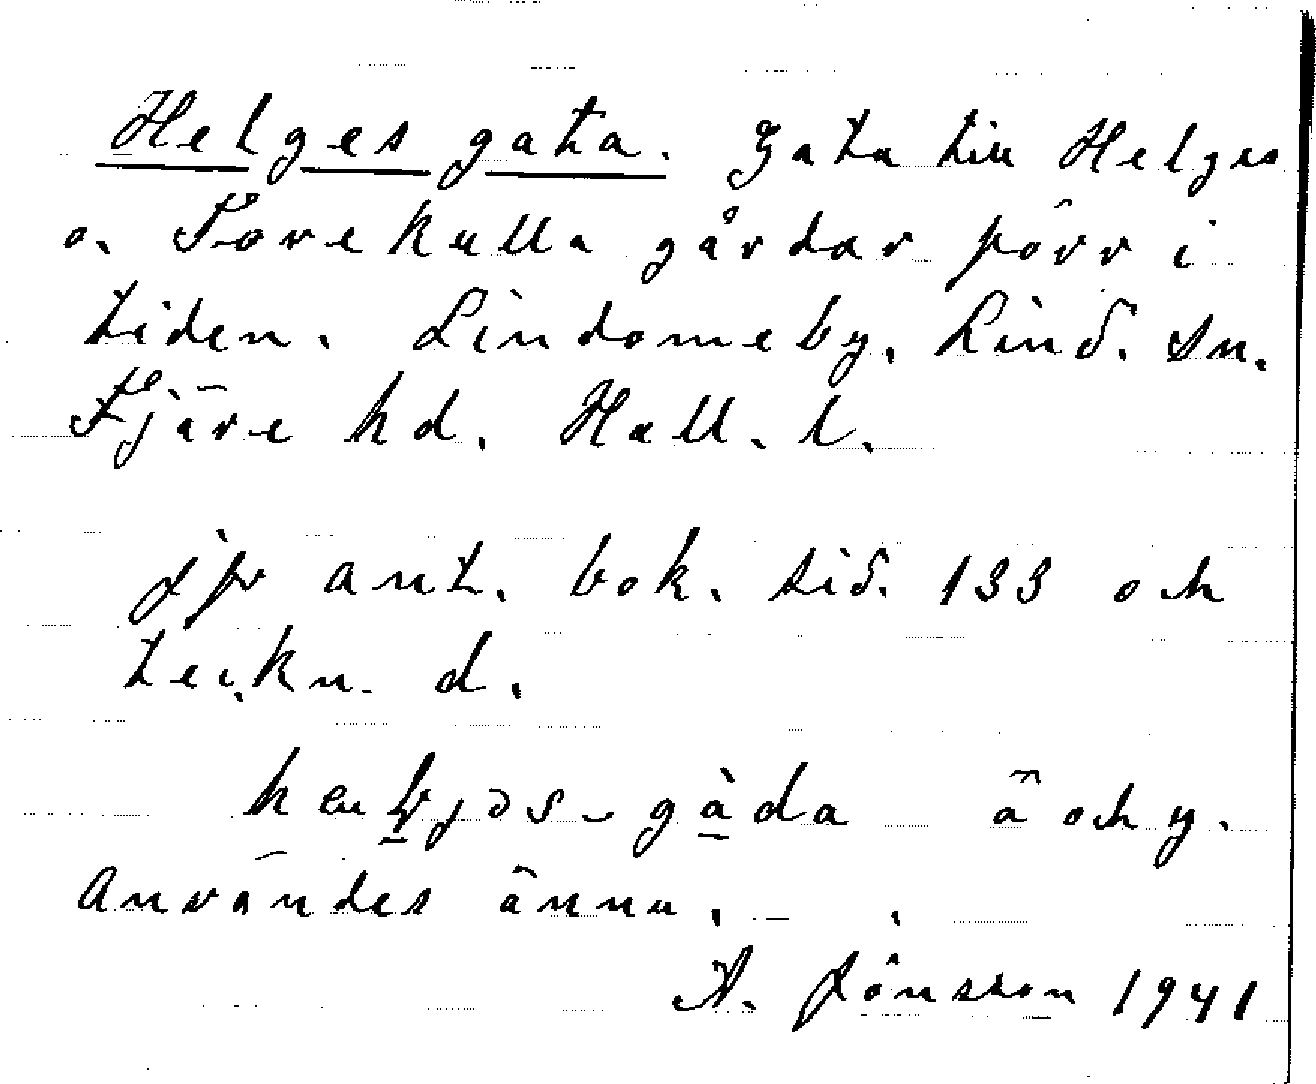 Helges gata. Gata till Helges
o. Torekulla gårdar förr i
tiden. Lindomeby. Lind. sn.
Fjäre hd. Hall. l.
Jfr ant. bok. sid. 133 och
teckn. d.
gàda ä och y.
Användes ännu.
A. Jönsson 1941